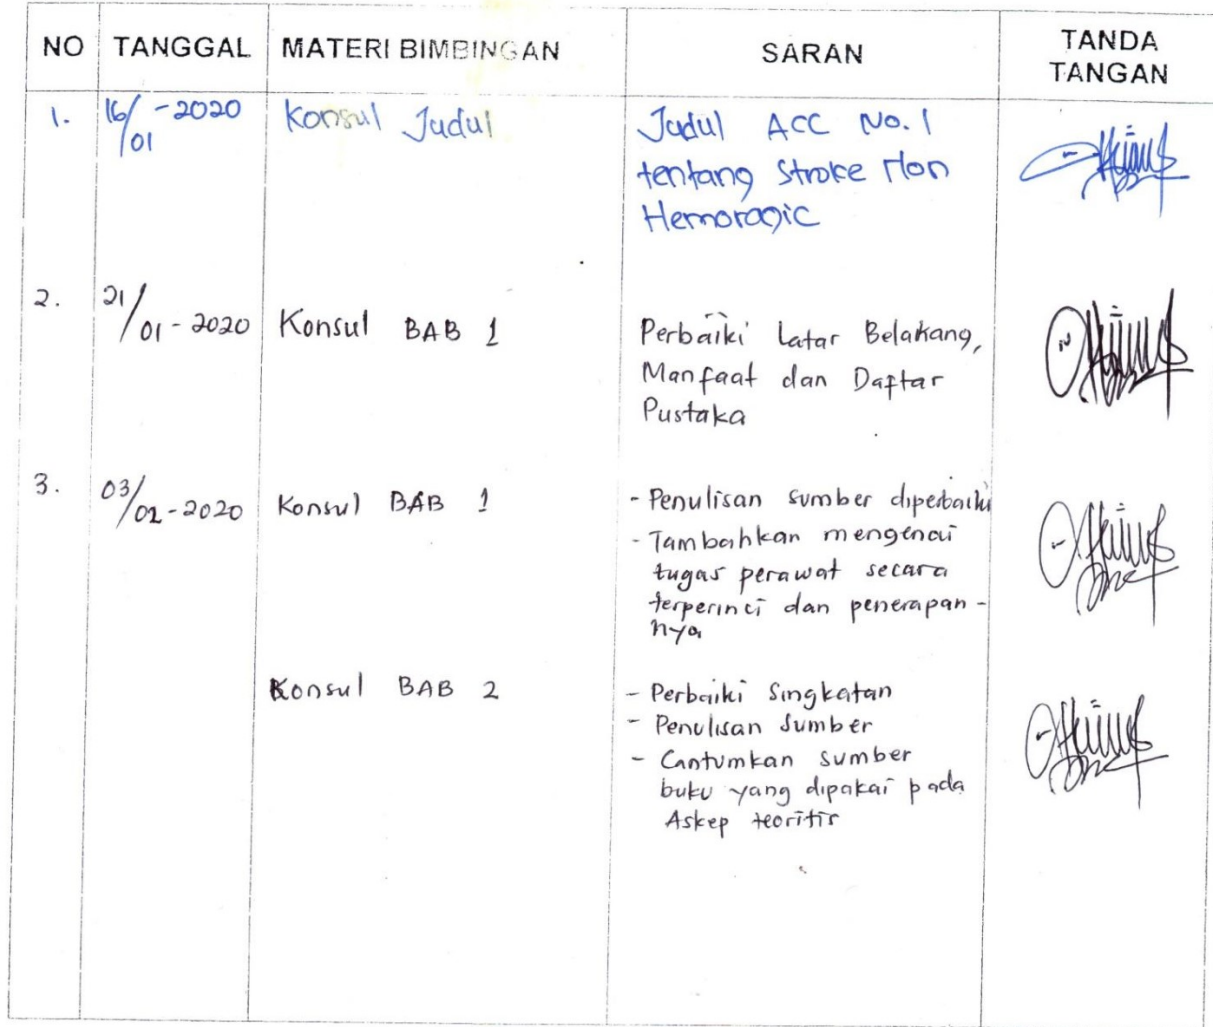 NO TANGGAL MATERI BIMBINGAN SARAN TANDA TANGAN
1. 16/01-2020 Konsul Judul Judul ACC No. 1
tentang Stroke Non
Hemoragic
2. 21/01-2020 Konsul BAB 1 Perbaiki Latar Belakang,
Manfaat dan Daftar
Pustaka
3. 03/02-2020 Konsul BAB 1 - Penulisan sumber diperbaiki
- Tambahkan mengenai
tugas perawat secara
terperinci dan penerapan-
nya
Konsul BAB 2 - Perbaiki Singkatan
- Penulisan Sumber
- Cantumkan sumber
buku yang dipakai pada
Askep teoritis